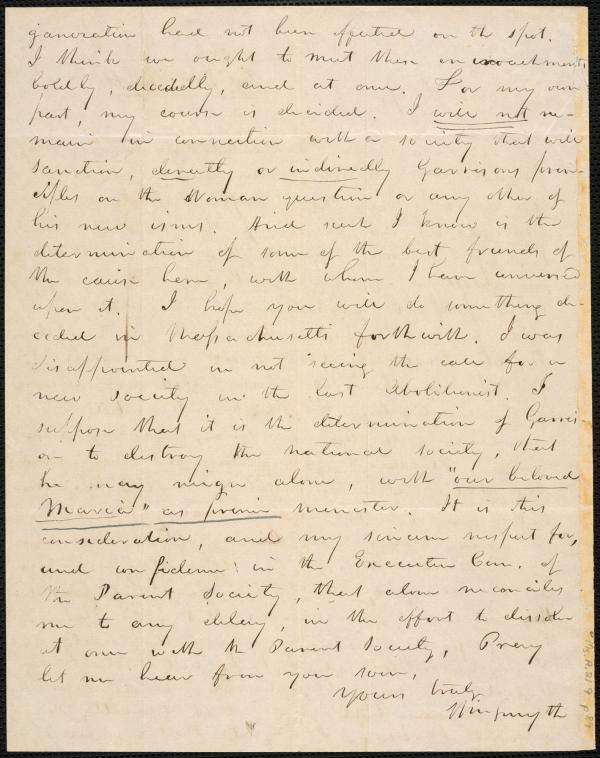 ganization had not been effected on the spot.
I think we ought to meet these encroachments
boldly, decidedly, and at once. For my own
part, my course is decided. I will not re-
main in connection with a society that will
sanction, directly or indirectly Garrisons prin-
ciples on the Woman question or any other of
his new isms. And such I know is the
determination of some of the best friends of
the cause here, with whom I have conversed
upon it. I hope you will do something de-
cided in Massachusetts forthwith. I was
disappointed in not seeing the call for a
new society in the last Abolitionist. I
suppose that it is the determination of Garris-
on to destroy the national society, that
he may reign alone, with "our beloved
Maria" as prime minister. It is this
consideration, and my sincere respect for,
and confidence in the Executive Com. of
the Parent Society, that alone reconciles
me to any delay, in the effort to dissolve
at once with the Parent Society, Pray
let me hear from you soon,
Yours truly